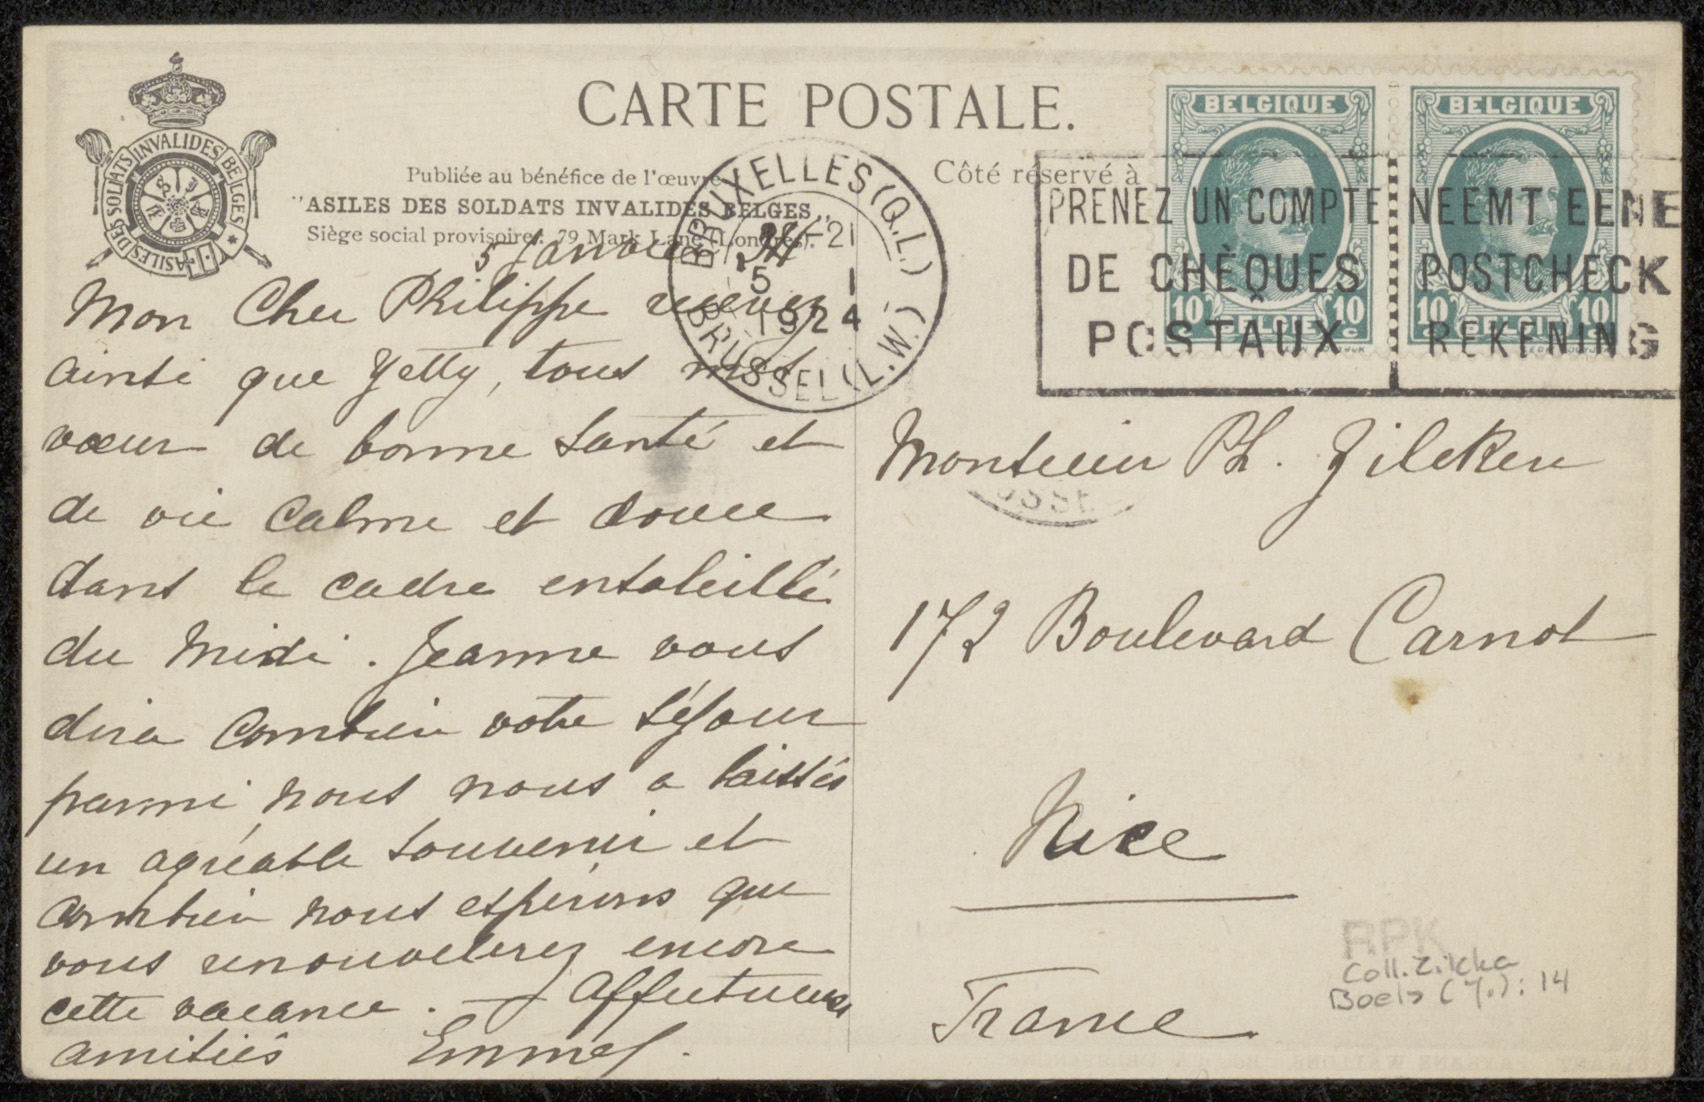 CARTE POSTALE.
ASILES DES SOLDATS INVALIDES BELGES
Publiée au bénéfice de l'œuvre
"ASILES DES SOLDATS INVALIDES BELGES„
Siège social provisoire: 79 Mark Lane (Londres).
Côté réservé à
BELGIQUE
BELGIQUE
10 BELGIË 10
10 BELGIË 10
BRUXELLES (Q.L.)
-21
5 1
1924
BRUSSEL (L.W.)
PRENEZ UN COMPTE
DE CHÈQUES
POSTAUX
NEEMT EENE
POSTCHECK
REKENING
5 Janvier 24
Mon Cher Philippe recevez
ainsi que Jetty, tous mes
vœux de bonne santé et
de vie calme et douce
dans le cadre ensoleillé
du Midi. Jeanne vous
dira combien votre séjour
parmi nous nous a laissés
un agréable souvenir et
combien nous espérons que
vous renouvelerez encore
cette vacance. — Affectueuses
amitiés Emma.
Monsieur Ph. Zilcken
172 Boulevard Carnot
Nice
France
RPK
Coll. Zilcken
Boels (Y.): 14